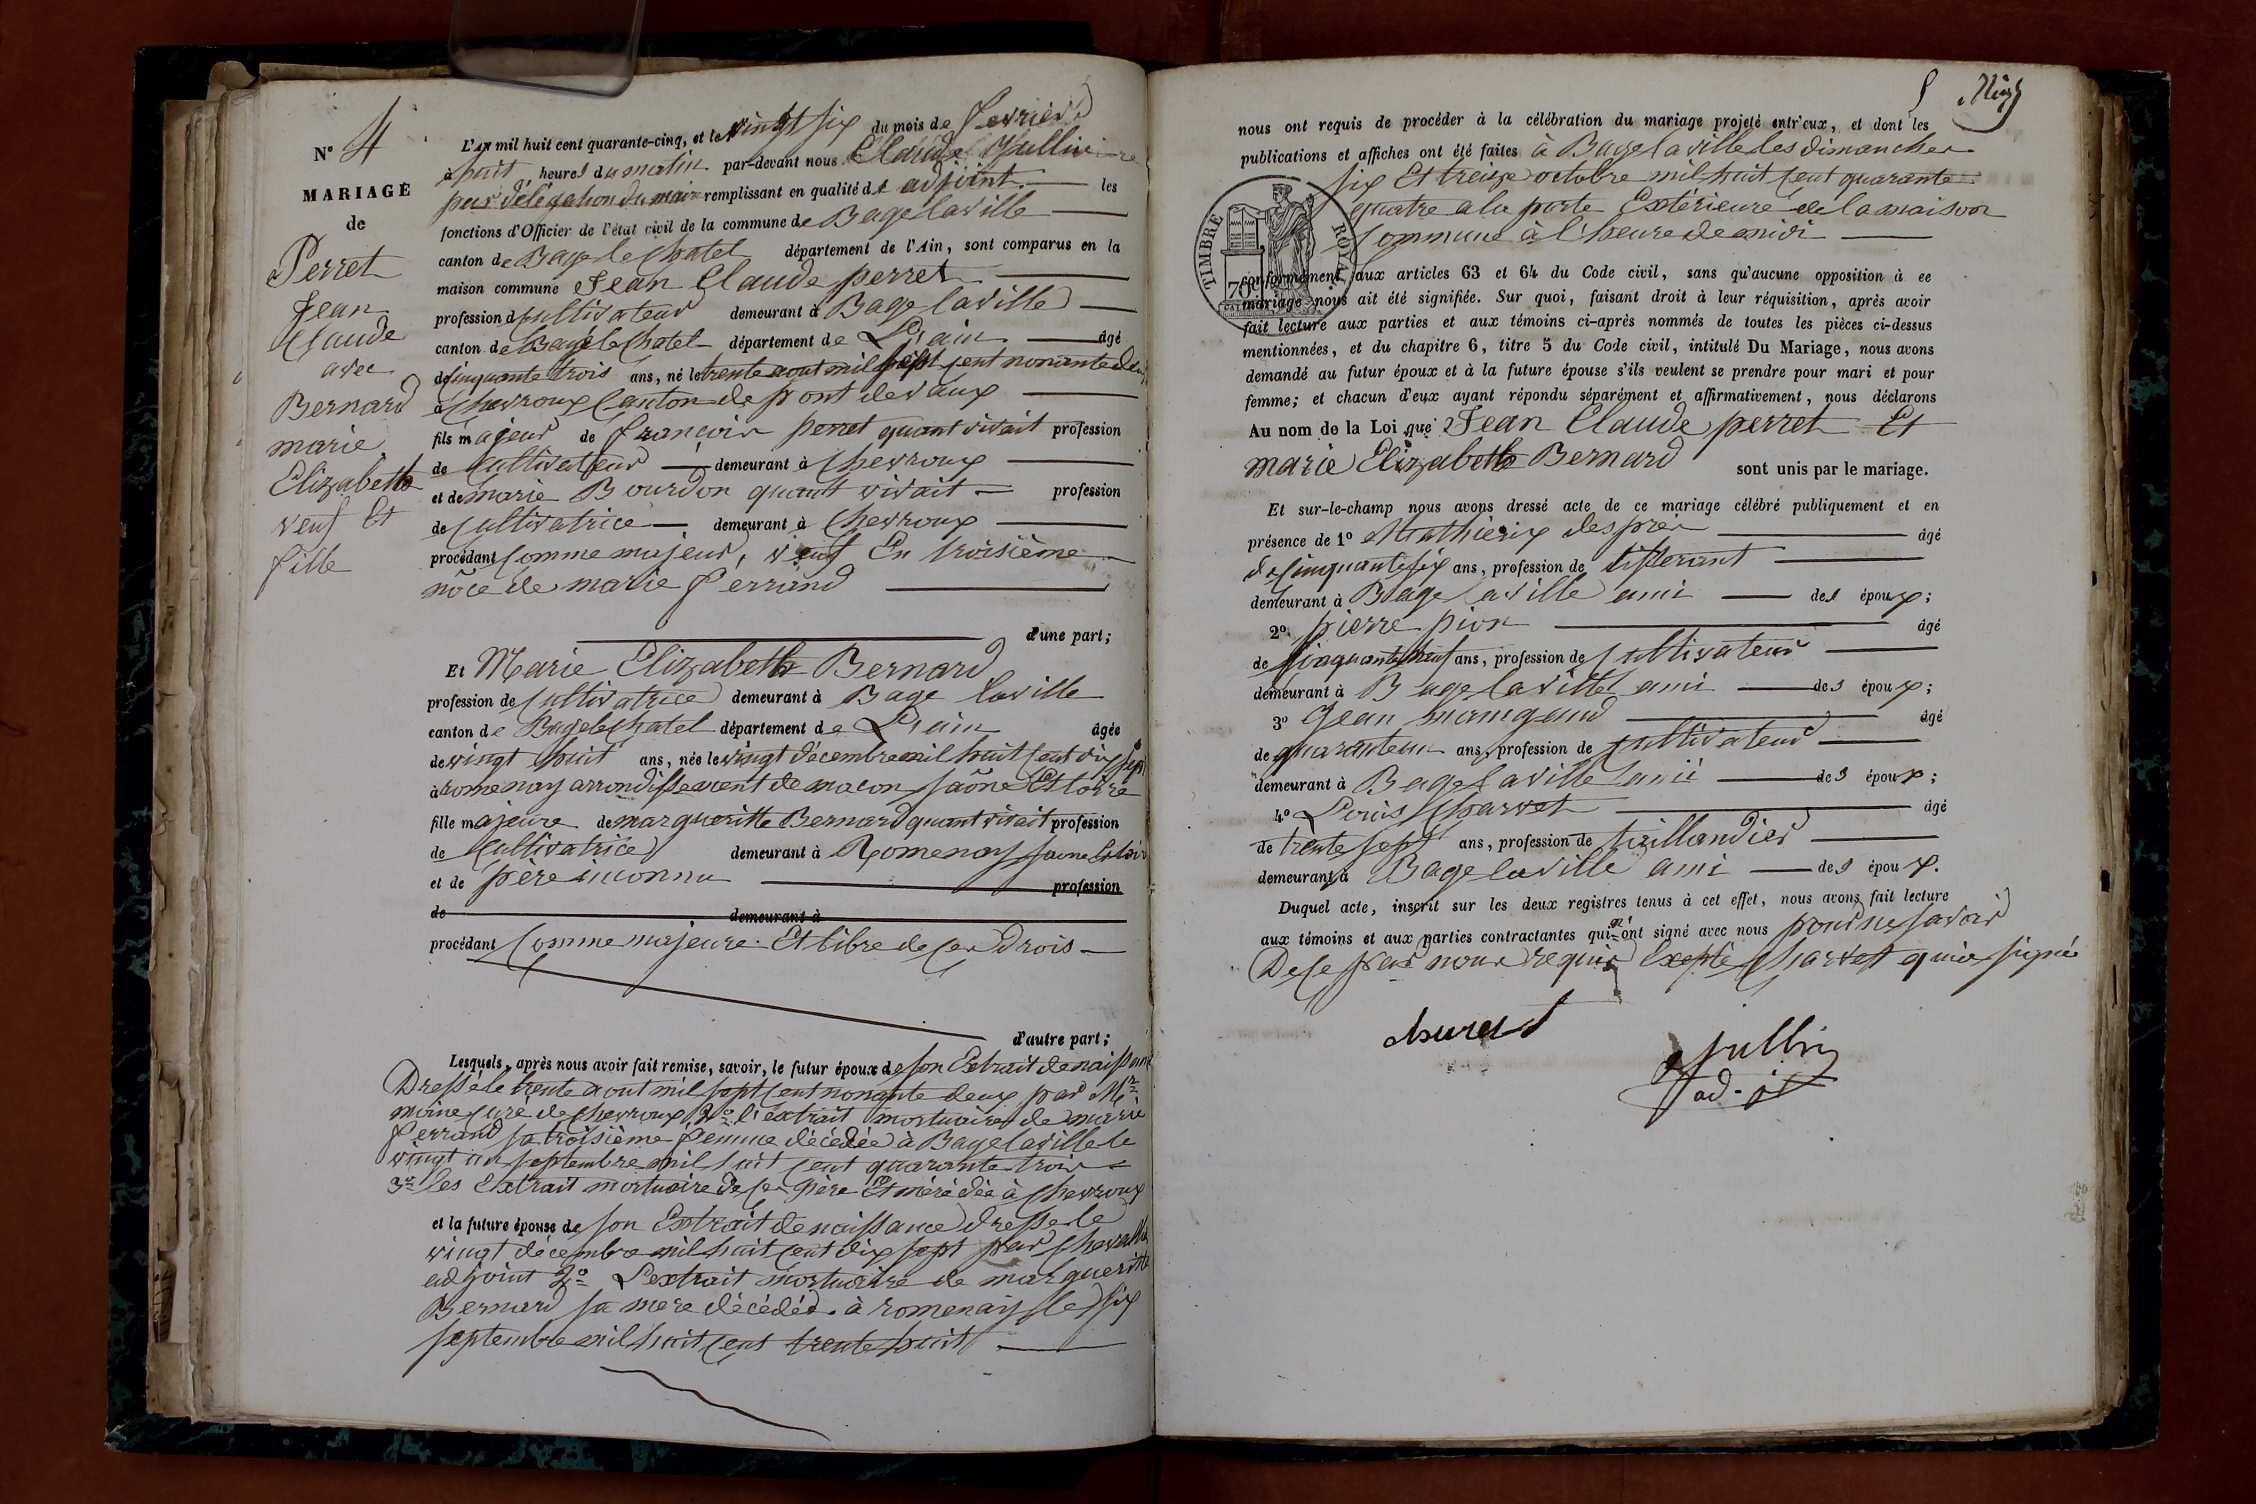 N° 4
MARIAGE
de
Perret
Jean
Claude
avec
Bernard
marie
Elizabeth
veuf Et
fille
L'An mil huit cent quarante-cinq, et le vingt six du mois de fevrier
à huit heures du matin par-devant nous Claude Jullin
par délégation du maire remplissant en qualité de adjoint les
fonctions d'Officier de l'état civil de la commune de Bage laville
canton de Bage le Chatel département de l'Ain, sont comparus en la
maison commune Jean Claude perret
profession de Cultivateur demeurant à Bage laville
canton de Bagé le Chatel département de L'ain âgé
de Cinquante trois ans, né le trente aout mil sept cent nonante deux
à Chevroux Canton de pont de vaux
fils majeur de françois perret quant vivait profession
de Cultivateur demeurant à Chevroux
et de marie Bourdon quant vivait profession
de Cultivatrice demeurant à Chevroux
procédant Comme majeur, veuf En troisième
nôce de marie ferrand
d'une part;
Et Marie Elizabeth Bernard
profession de Cultivatrice demeurant à Bage laville
canton de Bage le Chatel département de L'ain âgée
de vingt huit ans, née le vingt décembre mil huit Cent dix sept
à romenay arrondissement de macon saône Et loire
fille majeure de margueritte Bernard quant vivait profession
de Cultivatrice demeurant à Romenay saone Et loire
et de père inconnu profession
de demeurant à
procédant Comme majeure Et libre de ses Drois
d'autre part;
Lesquels, après nous avoir fait remise, savoir, le futur époux de son Extrait de naissance
Dressé le trente aout mil sept Cent nonante deux par Mr
moine curé de Chevroux 2° l'extrait mortuaire de marie
ferrand sa troisième femme décedée à Bage laville le
vingt un septembre mil huit cent quarante trois
3° les Extrait mortuaire de ses père Et mère dée à Chevroux
et la future épouse de son Extrait de naissance dressé le
vingt décembre mil huit cent dix sept par
adjoint 2° L'extrait mortuaire de margueritte
Bernard sa mere décédée à romenay le six
septembre mil huit cent trente huit
5
nous ont requis de procéder à la célébration du mariage projeté entr'eux, et dont les
publications et affiches ont été faites à Bage laville les dimanches
six Et treize octobre mil huit Cent quarante
quatre a la porte Extérieure de la maison
Commune à l'heure de midi
TIMBRE ROYAL
70
conformément aux articles 63 et 64 du Code civil, sans qu'aucune opposition à ce
mariage nous ait été signifiée. Sur quoi, faisant droit à leur réquisition, après avoir
fait lecture aux parties et aux témoins ci-après nommés de toutes les pièces ci-dessus
mentionnées, et du chapitre 6, titre 5 du Code civil, intitulé Du Mariage, nous avons
demandé au futur époux et à la future épouse s'ils veulent se prendre pour mari et pour
femme; et chacun d'eux ayant répondu séparément et affirmativement, nous déclarons
Au nom de la Loi que Jean Claude perret Et
marie Elizabeth Bernard sont unis par le mariage.
Et sur-le-champ nous avons dressé acte de ce mariage célébré publiquement et en
présence de 1° Mathieu desprer âgé
de Cinquante six ans, profession de tisserant
demeurant à Bage laville ami des époux;
2° pierre pion âgé
de Cinquante neuf ans, profession de Cultivateur
demeurant à Bage laville ami des époux;
3° Jean maingaud âgé
de quarante un ans, profession de Cultivateur
demeurant à Bage laville ami des époux;
4° Louis Charvet âgé
de trente sept ans, profession de taillandier
demeurant à Bage laville ami des époux.
Duquel acte, inscrit sur les deux registres tenus à cet effet, nous avons fait lecture
aux témoins et aux parties contractantes qui n'ont signé avec nous pour ne savoir
De ce par nous requis Excepté Charvet qui a signé
Jullin
adj.